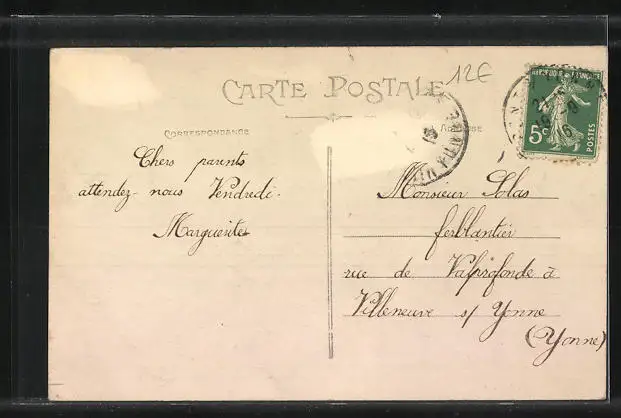 CARTE POSTALE
12€
CORRESPONDANCE
RÉPUBLIQUE FRANÇAISE
5c
POSTES
Chers parents
attendez-nous Vendredi.
Marguerite
Monsieur Solas
ferblantier
rue de Valprofonde à
Villeneuve s/ Yonne
(Yonne)